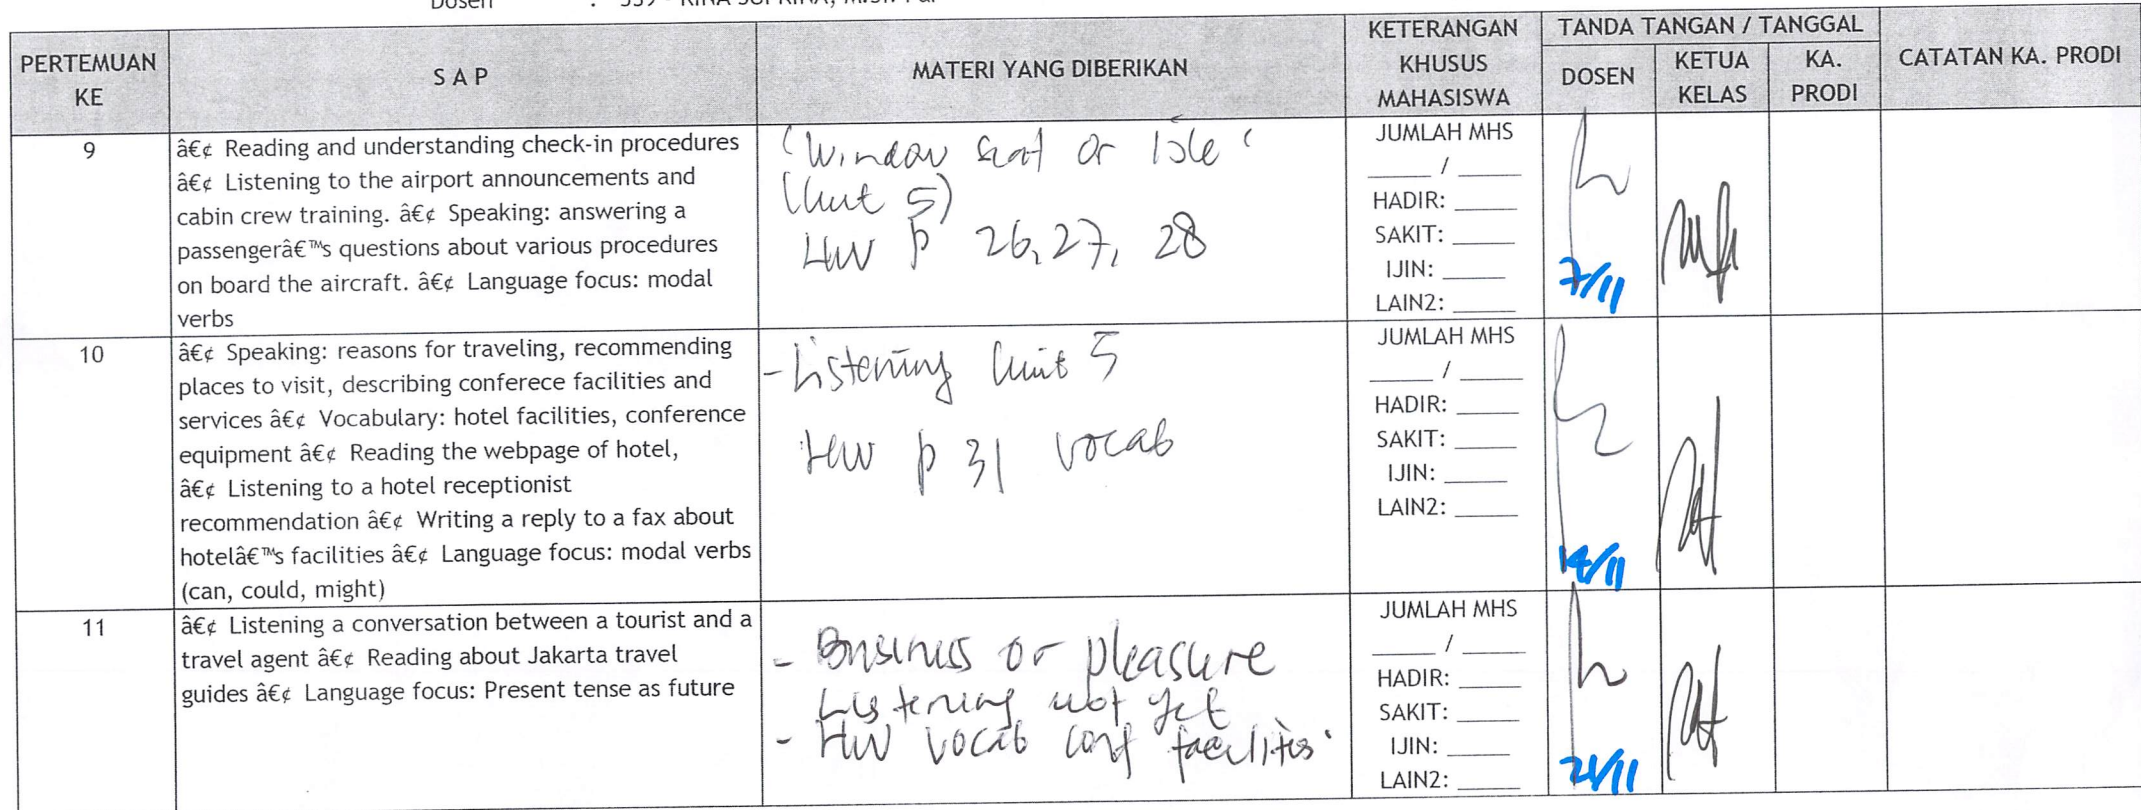 Dosen : 339 - RINA SUPRINA, M.Si. Par
PERTEMUAN KE
S A P
MATERI YANG DIBERIKAN
KETERANGAN KHUSUS MAHASISWA
TANDA TANGAN / TANGGAL
DOSEN
KETUA KELAS
KA. PRODI
CATATAN KA. PRODI
9
â€¢ Reading and understanding check-in procedures
â€¢ Listening to the airport announcements and
cabin crew training. â€¢ Speaking: answering a
passengerâ€™s questions about various procedures
on board the aircraft. â€¢ Language focus: modal
verbs
"Window seat or Isle"
(Unit 5)
HW p 26, 27, 28
JUMLAH MHS
_____ / _____
HADIR: _____
SAKIT: _____
IJIN: _____
LAIN2: _____
7/11
10
â€¢ Speaking: reasons for traveling, recommending
places to visit, describing conferece facilities and
services â€¢ Vocabulary: hotel facilities, conference
equipment â€¢ Reading the webpage of hotel,
â€¢ Listening to a hotel receptionist
recommendation â€¢ Writing a reply to a fax about
hotelâ€™s facilities â€¢ Language focus: modal verbs
(can, could, might)
- Listening Unit 5
HW p 31 vocab
JUMLAH MHS
_____ / _____
HADIR: _____
SAKIT: _____
IJIN: _____
LAIN2: _____
14/11
11
â€¢ Listening a conversation between a tourist and a
travel agent â€¢ Reading about Jakarta travel
guides â€¢ Language focus: Present tense as future
- Business or pleasure
Listening not yet
- HW vocab conf facilities
JUMLAH MHS
_____ / _____
HADIR: _____
SAKIT: _____
IJIN: _____
LAIN2: _____
21/11